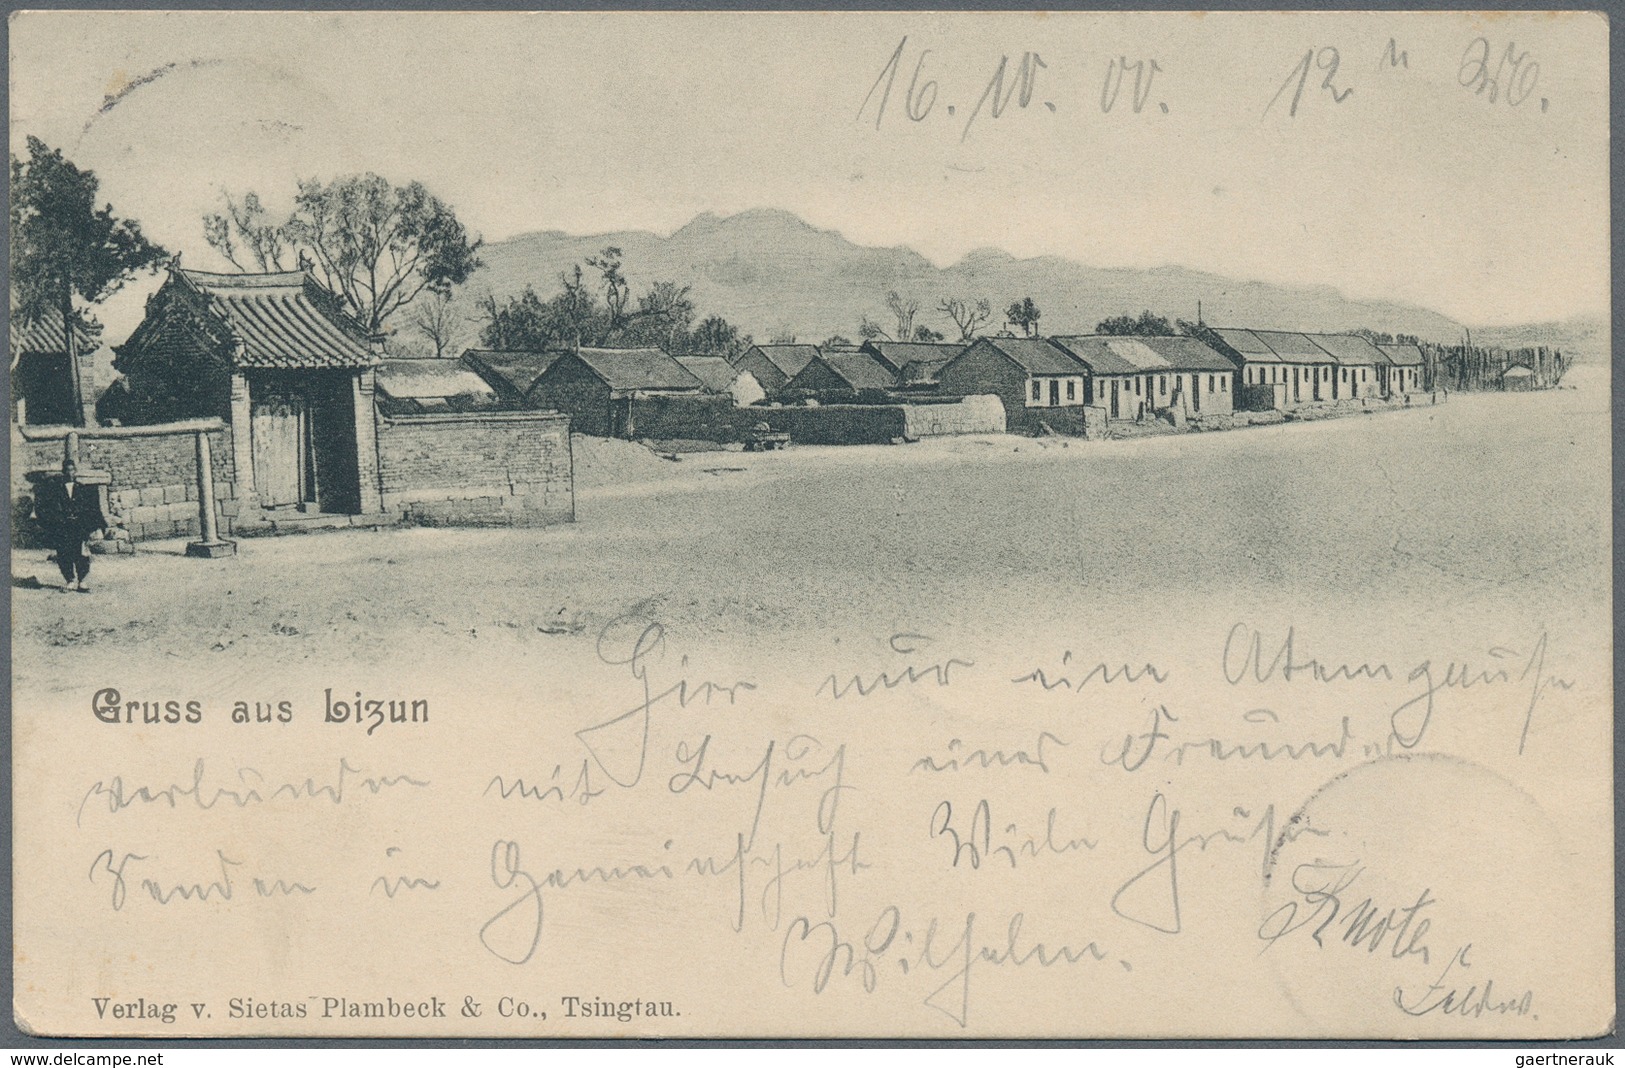 16. 10. 00. 12 " M.
Gruss aus Lizun
Hier nur eine Atempause
verbunden mit Besuch eines Freundes
Senden in Gemeinschaft Viele Grüße.
Wilhelm. Knote
Feldw.
Verlag v. Sietas Plambeck & Co., Tsingtau.
gaertnerauk